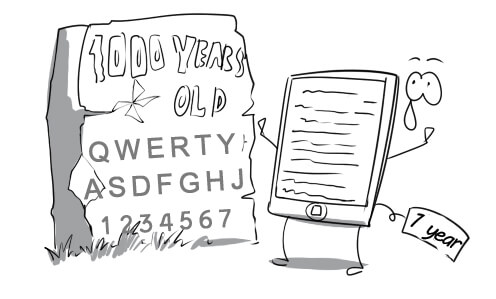 1000 YEARS
OLD
QWERTY
ASDFGHJ
1234567
1 year